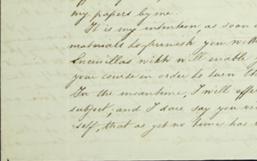 my papers by me.
It is my intention, as soon
materials to furnish you with
Encinillas with
your course in order to turn th
In the meantime, I will
subject, and I dare say you
self, that as yet no time has